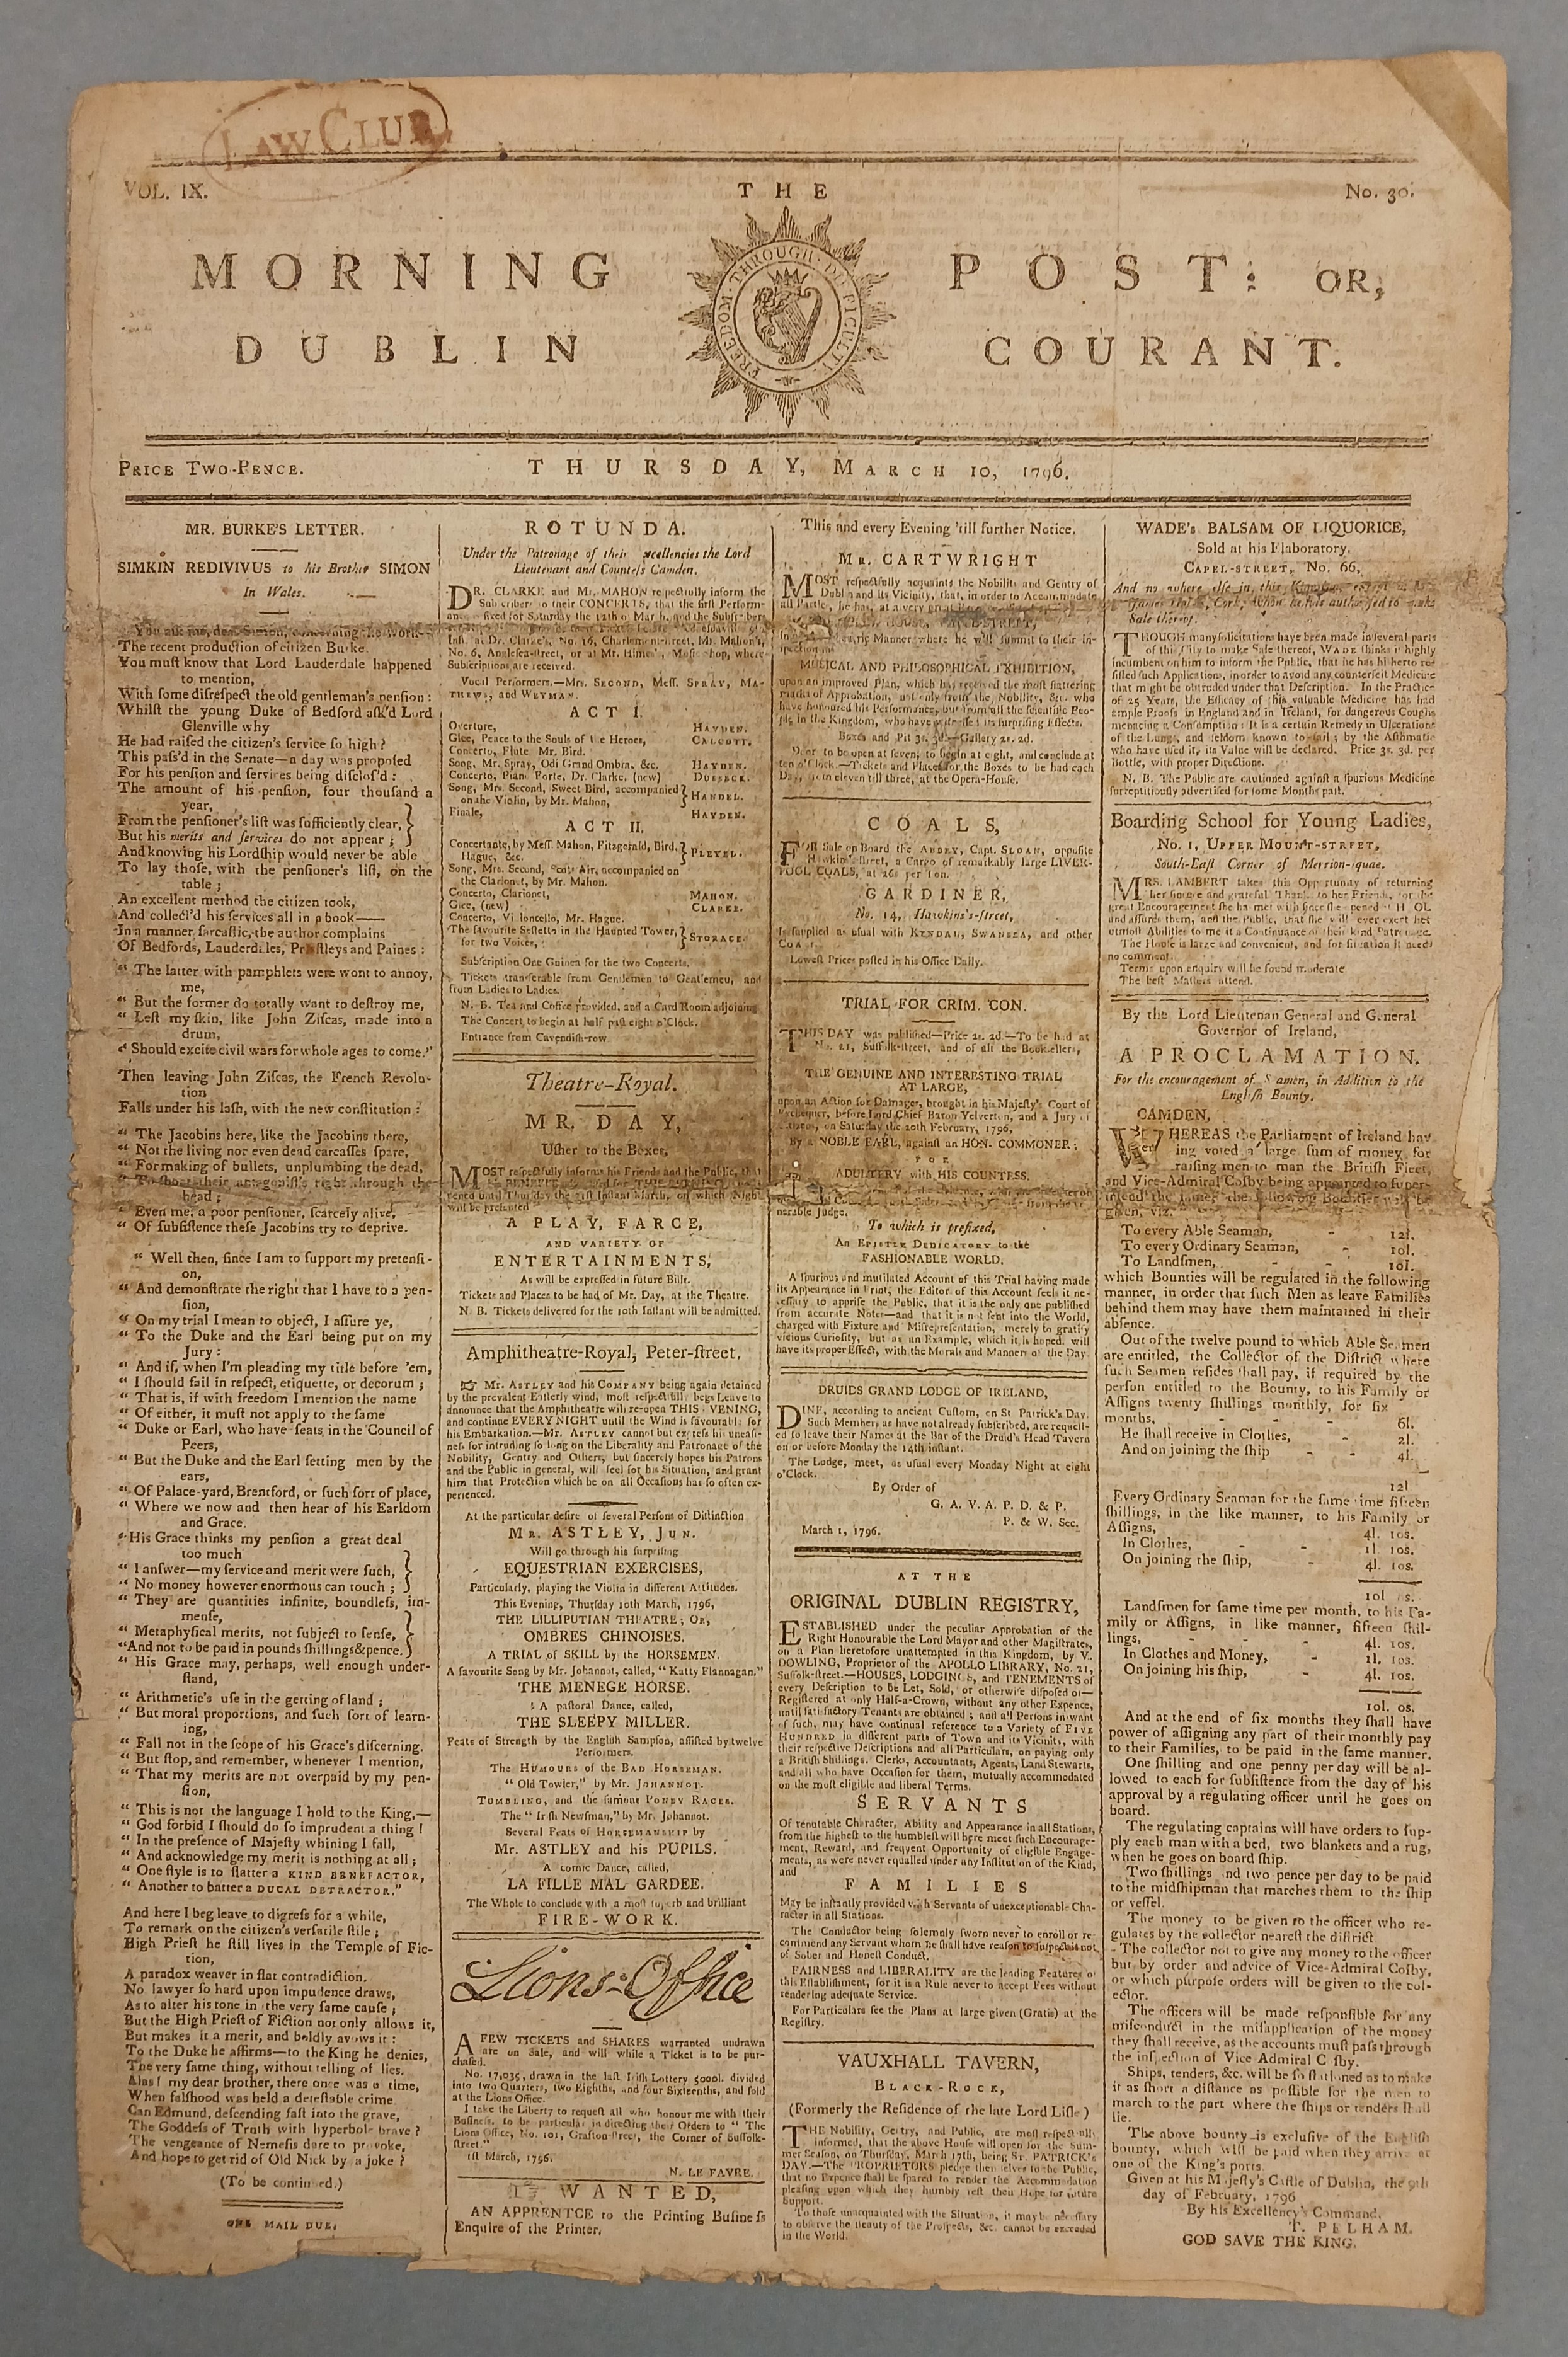 LAW CLUB
VOL. IX.
THE
No. 30.
MORNING
POST: OR,
FREEDOM THROUGH DIFICULTY
DUBLIN
COURANT.
PRICE TWO-PENCE.
THURSDAY, MARCH 10, 1796.
MR. BURKE'S LETTER.
SIMKIN REDIVIVUS to his Brother SIMON
In Wales.
The recent production of citizen Burke.
You must know that Lord Lauderdale happened
to mention,
With some disreſpect the old gentleman's penſion:
Whilſt the young Duke of Bedford aſk'd Lord
Glenville why
He had raiſed the citizen's ſervice ſo high?
This paſs'd in the Senate—a day was propoſed
For his penſion and ſervices being diſcloſ'd:
The amount of his penſion, four thouſand a
year,
From the penſioner's liſt was ſufficiently clear,
But his merits and ſervices do not appear;
And knowing his Lordſhip would never be able
To lay thoſe, with the penſioner's liſt, on the
table;
An excellent method the citizen took,
And collect'd his ſervices all in a book——
In a manner ſarcaſtic, the author complains
Of Bedfords, Lauderdales, Prieſtleys and Paines:
“ The latter with pamphlets were wont to annoy,
me,
“ But the former do totally want to deſtroy me,
“ Left my ſkin, like John Ziſcas, made into a
drum,
“ Should excite civil wars for whole ages to come.”
Then leaving John Ziſcas, the French Revolu-
tion
Falls under his laſh, with the new conſtitution:
“ The Jacobins here, like the Jacobins there,
“ Not the living nor even dead carcaſſes ſpare,
“ For making of bullets, unplumbing the dead,
“ To ſhoot their antagoniſt's right through the
head;
“ Even me, a poor penſioner, ſcarcely alive,
“ Of ſubſiſtence theſe Jacobins try to deprive.
“ Well then, ſince I am to ſupport my pretenſi-
on,
“ And demonſtrate the right that I have to a pen-
ſion,
“ On my trial I mean to object, I aſſure ye,
“ To the Duke and the Earl being put on my
Jury:
“ And if, when I'm pleading my title before 'em,
“ I ſhould fail in reſpect, etiquette, or decorum;
“ That is, if with freedom I mention the name
“ Of either, it muſt not apply to the ſame
“ Duke or Earl, who have ſeats in the Council of
Peers,
“ But the Duke and the Earl ſetting men by the
ears,
“ Of Palace-yard, Brentford, or ſuch ſort of place,
“ Where we now and then hear of his Earldom
and Grace.
“ His Grace thinks my penſion a great deal
too much
“ I anſwer—my ſervice and merit were ſuch,
“ No money however enormous can touch;
“ They are quantities infinite, boundleſs, im-
menſe,
“ Metaphyſical merits, not ſubject to ſenſe,
“ And not to be paid in pounds ſhillings&pence.
“ His Grace may, perhaps, well enough under-
ſtand,
“ Arithmetic's uſe in the getting of land;
“ But moral proportions, and ſuch ſort of learn-
ing,
“ Fall not in the ſcope of his Grace's diſcerning.
“ But ſtop, and remember, whenever I mention,
“ That my merits are not overpaid by my pen-
ſion,
“ This is not the language I hold to the King,—
“ God forbid I ſhould do ſo imprudent a thing!
“ In the preſence of Majeſty whining I fall,
“ And acknowledge my merit is nothing at all;
“ One ſtyle is to flatter a KIND BENEFACTOR,
“ Another to batter a DUCAL DETRACTOR.”
And here I beg leave to digreſs for a while,
To remark on the citizen's verſatile ſtile;
High Prieſt he ſtill lives in the Temple of Fic-
tion,
A paradox weaver in flat contradiction.
No lawyer ſo hard upon impudence draws,
As to alter his tone in the very ſame cauſe;
But the High Prieſt of Fiction not only allows it,
But makes it a merit, and boldly avows it:
To the Duke he affirms—to the King he denies,
The very ſame thing, without telling of lies.
Alas! my dear brother, there once was a time,
When falſhood was held a deteſtable crime
Can Edmund, deſcending faſt into the grave,
The Goddeſs of Truth with hyperbole brave?
The vengeance of Nemeſis dare to provoke,
And hope to get rid of Old Nick by a joke?
(To be continued.)
ONE MAIL DUE.
ROTUNDA.
Under the Patronage of their xcellencies the Lord
Lieutenant and Counteſs Camden.
DR. CLARKE and Mr. MAHON reſpectfully inform the
Subſcribers to their CONCERTS, that the firſt Perform-
ance fixed for Saturday the 12th of March, and the Subſcribers
Inſt. at Dr. Clarke's, No. 16, Charlemont-ſtreet, Mr. Mahon's,
No. 6, Angleſea-ſtreet, or at Mr. Himes', Muſic ſhop, where
Subſcriptions are received.
Vocal Performers.—Mrs. SECOND, Meſſ. SPRAY, MA-
THEWS, and WEYMAN.
ACT I.
Overture, HAYDEN.
Glee, Peace to the Souls of the Heroes, CALCOTT.
Concerto, Flute Mr. Bird.
Song, Mr. Spray, Odi Grand Ombra, &c. HAYDEN.
Concerto, Piano Forte, Dr. Clarke, (new) DUSSECK.
Song, Mrs. Second, Sweet Bird, accompanied
on the Violin, by Mr. Mahon, HANDEL.
Finale, HAYDEN.
ACT II.
Concertante, by Meſſ. Mahon, Fitzgerald, Bird,
Hague, &c. PLEYEL.
Song, Mrs. Second, Scots Air, accompanied on
the Clarionet, by Mr. Mahon.
Concerto, Clarionet, MAHON.
Glee, (new) CLARKE.
Concerto, Violoncello, Mr. Hague.
The favourite Seſtetto in the Haunted Tower,
for two Voices, STORACE.
Subſcription One Guinea for the two Concerts.
Tickets transferable from Gentlemen to Gentlemen, and
from Ladies to Ladies.
N. B. Tea and Coffee provided, and a Card Room adjoining
The Concert to begin at half paſt eight o'Clock.
Entrance from Cavendiſh-row
Theatre-Royal.
MR. DAY,
Uſher to the Boxes,
MOST reſpectfully informs his Friends and the Public, that
until Thurſday the 31ſt Inſtant March, on which Night
will be preſented
A PLAY, FARCE,
AND VARIETY OF
ENTERTAINMENTS,
As will be expreſſed in future Bills.
Tickets and Places to be had of Mr. Day, at the Theatre.
N. B. Tickets delivered for the 10th Inſtant will be admitted.
Amphitheatre-Royal, Peter-ſtreet.
☞ Mr. ASTLEY and his COMPANY being again detained
by the prevalent Eaſterly wind, moſt reſpectfully begs Leave to
announce that the Amphitheatre will re-open THIS EVENING,
and continue EVERY NIGHT until the Wind is favourable for
his Embarkation.—Mr. ASTLEY cannot but expreſs his uneaſi-
neſs for intruding ſo long on the Liberality and Patronage of the
Nobility, Gentry and Others, but ſincerely hopes his Patrons
and the Public in general, will feel for his Situation, and grant
him that Protection which he on all Occaſions has ſo often ex-
perienced.
At the particular deſire of ſeveral Perſons of Diſtinction
MR. ASTLEY, JUN.
Will go through his ſurpriſing
EQUESTRIAN EXERCISES,
Particularly, playing the Violin in different Attitudes.
This Evening, Thurſday 10th March, 1796,
THE LILLIPUTIAN THEATRE; OR,
OMBRES CHINOISES.
A TRIAL of SKILL by the HORSEMEN.
A favourite Song by Mr. Johannot, called, “Katty Flannagan.”
THE MENEGE HORSE.
A paſtoral Dance, called,
THE SLEEPY MILLER.
Feats of Strength by the Engliſh Sampſon, aſſiſted by twelve
Performers.
The HUMOURS of the BAD HORSEMAN.
“ Old Towler,” by Mr. JOHANNOT.
TUMBLING, and the famous PONEY RACES.
The “ Iriſh Newſman,” by Mr. Johannot.
Several Feats of HORSEMANSHIP by
Mr. ASTLEY and his PUPILS.
A comic Dance, called,
LA FILLE MAL GARDEE.
The Whole to conclude with a moſt ſuperb and brilliant
FIRE-WORK.
Lions-Office
A FEW TICKETS and SHARES warranted undrawn
are on Sale, and will while a Ticket is to be pur-
chaſed.
No. 17,035, drawn in the laſt Iriſh Lottery 5000l. divided
into two Quarters, two Eighths, and four Sixteenths, and ſold
at the Lions Office.
I take the Liberty to requeſt all who honour me with their
Buſineſs, to be particular in directing their Orders to “ The
Lions Office, No. 101, Grafton-ſtreet, the Corner of Suffolk-
ſtreet.”
1ſt March, 1796.
N. LE FAVRE.
WANTED,
AN APPRENTCE to the Printing Buſineſs
Enquire of the Printer,
This and every Evening 'till further Notice.
MR. CARTWRIGHT
MOST reſpectfully acquaints the Nobility and Gentry of
Dublin and its Vicinity, that, in order to Accommodate
all Parties, he has, at a very great
Manner where he will ſubmit to their in-
ſpection his
MUSICAL AND PHILOSOPHICAL EXHIBITION,
upon an improved Plan, which has received the moſt flattering
marks of Approbation, not only from the Nobility, &c. who
have honoured his Performance, but from all the ſcientific Peo-
ple in the Kingdom, who have witneſſed its ſurpriſing Effects.
Boxes and Pit 3s. 3d.—Gallery 2s. 2d.
Door to be open at ſeven, to begin at eight, and conclude at
ten o'Clock.—Tickets and Places for the Boxes to be had each
Day, from eleven till three, at the Opera-Houſe.
COALS,
FOR Sale on Board the ABBEY, Capt. SLOAN, oppoſite
Hawkins'-ſtreet, a Cargo of remarkably large LIVER-
POOL COALS, at 26s. per Ton.
GARDINER,
No. 14, Hawkins's-ſtreet,
Is ſupplied as uſual with KENDAL, SWANSEA, and other
COALS.
Loweſt Prices poſted in his Office Daily.
TRIAL FOR CRIM. CON.
THIS DAY was publiſhed—Price 2s. 2d.—To be had at
No. 21, Suffolk-ſtreet, and of all the Bookſellers,
THE GENUINE AND INTERESTING TRIAL
AT LARGE,
upon an Action for Damages, brought in his Majeſty's Court of
Exchequer, before Lord Chief Baron Yelverton, and a Jury of
Citizens, on Saturday the 20th February, 1796,
By a NOBLE EARL, againſt an HON. COMMONER;
FOR
ADULTERY with HIS COUNTESS.
nerable Judge.
To which is prefixed,
An EPISTLE DEDICATORY to the
FASHIONABLE WORLD.
A ſpurious and mutilated Account of this Trial having made
its Appearance in Print, the Editor of this Account feels it ne-
ceſſary to appriſe the Public, that it is the only one publiſhed
from accurate Notes—and that it is not ſent into the World,
charged with Fixture and Miſrepreſentation, merely to gratify
vicious Curioſity, but as an Example, which it is hoped, will
have its proper Effect, with the Morals and Manners of the Day.
DRUIDS GRAND LODGE OF IRELAND,
DINE, according to ancient Cuſtom, on St Patrick's Day.
Such Members as have not already ſubſcribed, are requeſt-
ed to leave their Names at the Bar of the Druid's Head Tavern
on or before Monday the 14th inſtant.
The Lodge, meet, as uſual every Monday Night at eight
o'Clock.
By Order of
G. A. V. A. P. D. & P.
P. & W. Sec.
March 1, 1796.
AT THE
ORIGINAL DUBLIN REGISTRY,
ESTABLISHED under the peculiar Approbation of the
Right Honourable the Lord Mayor and other Magiſtrates,
on a Plan heretofore unattempted in this Kingdom, by V.
DOWLING, Proprietor of the APOLLO LIBRARY, No. 21,
Suffolk-ſtreet.—HOUSES, LODGINGS, and TENEMENTS of
every Deſcription to be Let, Sold, or otherwiſe diſpoſed of—
Regiſtered at only Half-a-Crown, without any other Expence,
until ſatisfactory Tenants are obtained; and all Perſons in want
of ſuch, may have continual reference to a Variety of FIVE
HUNDRED in different parts of Town and its Vicinity, with
their reſpective Deſcriptions and all Particulars, on paying only
a Britiſh Shilling. Clerks, Accountants, Agents, Land Stewarts,
and all who have Occaſion for them, mutually accommodated
on the moſt eligible and liberal Terms.
SERVANTS
Of reputable Character, Ability and Appearance in all Stations,
from the higheſt to the humbleſt will here meet ſuch Encourage-
ment, Reward, and frequent Opportunity of eligible Engage-
ments, as were never equalled under any Inſtitution of the Kind,
and
FAMILIES
May be inſtantly provided with Servants of unexceptionable Cha-
racter in all Stations.
The Conductor being ſolemnly ſworn never to enroll or re-
commend any Servant whom he ſhall have reaſon to ſuſpect is not
of Sober and Honeſt Conduct.
FAIRNESS and LIBERALITY are the leading Features of
this Eſtabliſhment, for it is a Rule never to accept Fees without
rendering adequate Service.
For Particulars ſee the Plans at large given (Gratis) at the
Regiſtry.
VAUXHALL TAVERN,
BLACK-ROCK,
(Formerly the Reſidence of the late Lord Liſle)
THE Nobility, Gentry, and Public, are moſt reſpectfully
informed, that the above Houſe will open for the Sum-
mer Seaſon, on Thurſday, March 17th, being St. PATRICK's
DAY.—The PROPRIETORS pledge themſelves to the Public,
that no Expence ſhall be ſpared to render the Accommodation
pleaſing upon which they humbly reſt their Hope for future
Support.
To thoſe unacquainted with the Situation, it may be neceſſary
to obſerve the Beauty of the Proſpects, &c. cannot be exceeded
in the World.
WADE's BALSAM OF LIQUORICE,
Sold at his Elaboratory,
CAPEL-STREET, No. 66,
And no where elſe in this Kingdom except
Sale thereof.
THOUGH many ſolicitations have been made in ſeveral parts
of this City to make Sale thereof, WADE thinks it highly
incumbent on him to inform the Public, that he has hitherto re-
fiſted ſuch Applications, in order to avoid any counterfeit Medicine
that might be obtruded under that Deſcription. In the Practice
of 25 Years, the Efficacy of this valuable Medicine has had
ample Proofs in England and in Ireland, for dangerous Coughs
menacing a Conſumption: It is a certain Remedy in Ulcerations
of the Lungs, and ſeldom known to fail; by the Aſthmatic
who have uſed it, its Value will be declared. Price 3s. 3d. per
Bottle, with proper Directions.
N. B. The Public are cautioned againſt a ſpurious Medicine
ſurreptitiouſly advertiſed for ſome Months paſt.
Boarding School for Young Ladies,
No. 1, UPPER MOUNT-STREET,
South-Eaſt Corner of Merrion-ſquae.
MRS. LAMBERT takes this Opportunity of returning
her ſincere and grateful Thanks to her Friends, for the
great Encouragement ſhe has met with ſince ſhe opened SCHOOL
and aſſures them, and the Public, that ſhe will ever exert her
utmoſt Abilities to me it a Continuance of their kind Patronage.
The Houſe is large and convenient, and for ſituation it needs
no comment.
Terms upon enquiry will be found moderate
The beſt Maſters attend.
By the Lord Lieutenan General and General
Governor of Ireland,
A PROCLAMATION.
For the encouragement of S amen, in Addition to the
Engliſh Bounty.
CAMDEN,
WHEREAS the Parliament of Ireland hav
ing voted a large ſum of money for
raiſing men to man the Britiſh Fleet,
and Vice-Admiral Coſby being appointed to ſuper-
intend the ſame, the following Bounties will be
given, viz.
To every Able Seaman, - 12l.
To every Ordinary Seaman, - 10l.
To Landſmen, - - 10l.
which Bounties will be regulated in the following
manner, in order that ſuch Men as leave Families
behind them may have them maintained in their
abſence.
Out of the twelve pound to which Able Seamen
are entitled, the Collector of the Diſtrict where
ſuch Seamen reſides ſhall pay, if required by the
perſon entitled to the Bounty, to his Family or
Aſſigns twenty ſhillings monthly, for ſix
months, - - - 6l.
He ſhall receive in Clothes, - 2l.
And on joining the ſhip - - 4l.
12l
Every Ordinary Seaman for the ſame time fifteen
ſhillings, in the like manner, to his Family or
Aſſigns, 4l. 10s.
In Clothes, - - 1l. 10s.
On joining the ſhip, - 4l. 10s.
10l 10s.
Landſmen for ſame time per month, to his Fa-
mily or Aſſigns, in like manner, fifteen ſhil-
lings, - - 4l. 10s.
In Clothes and Money, - 1l. 10s.
On joining his ſhip, - 4l. 10s.
10l. 0s.
And at the end of ſix months they ſhall have
power of aſſigning any part of their monthly pay
to their Families, to be paid in the ſame manner.
One ſhilling and one penny per day will be al-
lowed to each for ſubſiſtence from the day of his
approval by a regulating officer until he goes on
board.
The regulating captains will have orders to ſup-
ply each man with a bed, two blankets and a rug,
when he goes on board ſhip.
Two ſhillings nd two pence per day to be paid
to the midſhipman that marches them to the ſhip
or veſſel.
The money to be given to the officer who re-
gulates by the collector neareſt the diſtrict
The collector not to give any money to the officer
but by order and advice of Vice-Admiral Coſby,
or which purpoſe orders will be given to the col-
ector.
The officers will be made reſponſible for any
miſconduct in the miſapplication of the money
they ſhall receive, as the accounts muſt paſs through
the inſpection of Vice Admiral C ſby.
Ships, tenders, &c. will be ſo ſtationed as to make
it as ſhort a diſtance as poſſible for the men to
march to the part where the ſhips or tenders ſhall
lie.
The above bounty is excluſive of the Engliſh
bounty, which will be paid when they arrive at
one of the King's ports.
Given at his Majeſty's Caſtle of Dublin, the 9th
day of February, 1796
By his Excellency's Command,
T. PELHAM.
GOD SAVE THE KING.